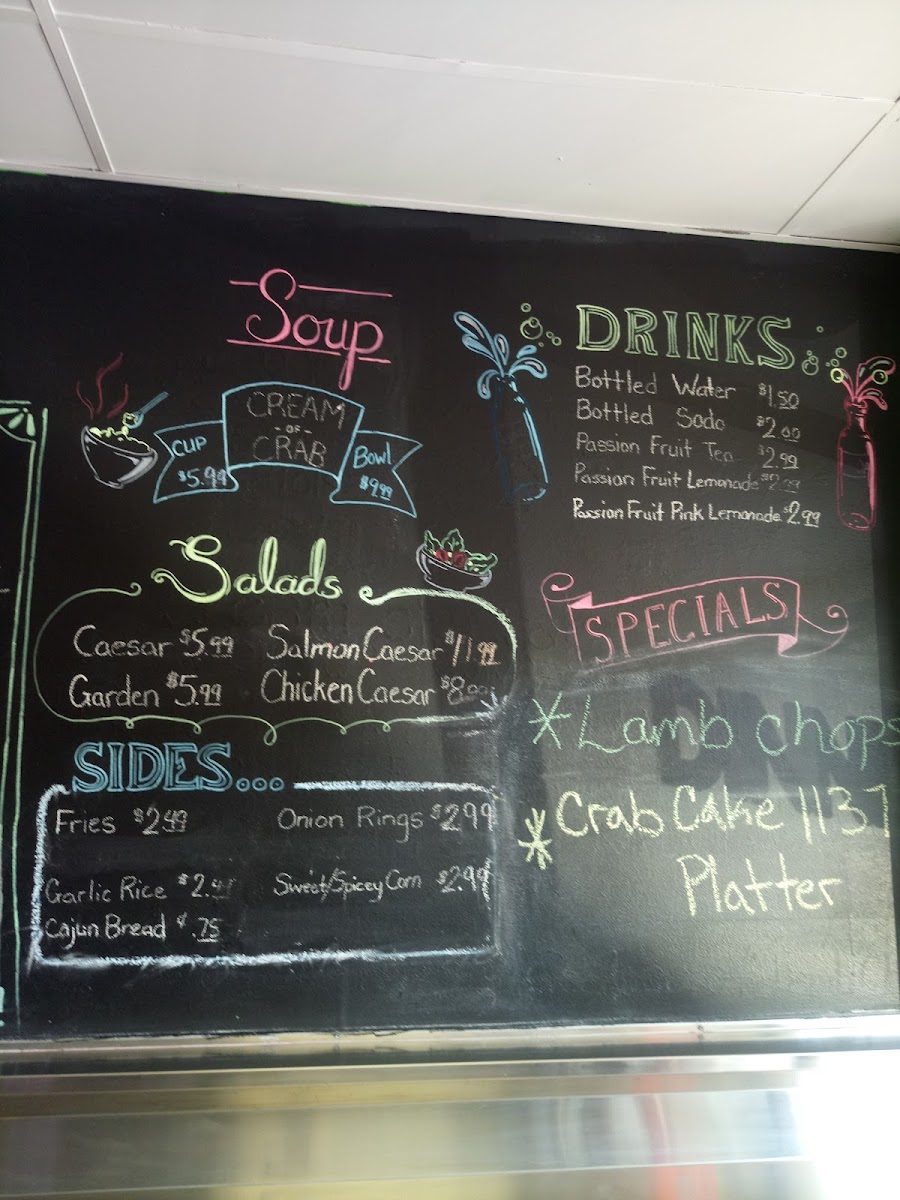 Soup
CREAM
-OF-
CRAB
CUP
$5.99
Bowl
$9.99
Salads
Caesar $5.99 Salmon Caesar $11.99
Garden $5.99 Chicken Caesar
SIDES...
Fries $2.49 Onion Rings $2.99
Garlic Rice Sweet/Spicey Corn $2.99
Cajun Bread ¢.75
DRINKS
Bottled Water $1.50
Bottled Soda $2.00
Passion Fruit Tea $2.99
Passion Fruit Lemonade $2.99
Passion Fruit Pink Lemonade $2.99
SPECIALS
*Lamb chops
*Crab Cake 1137
Platter